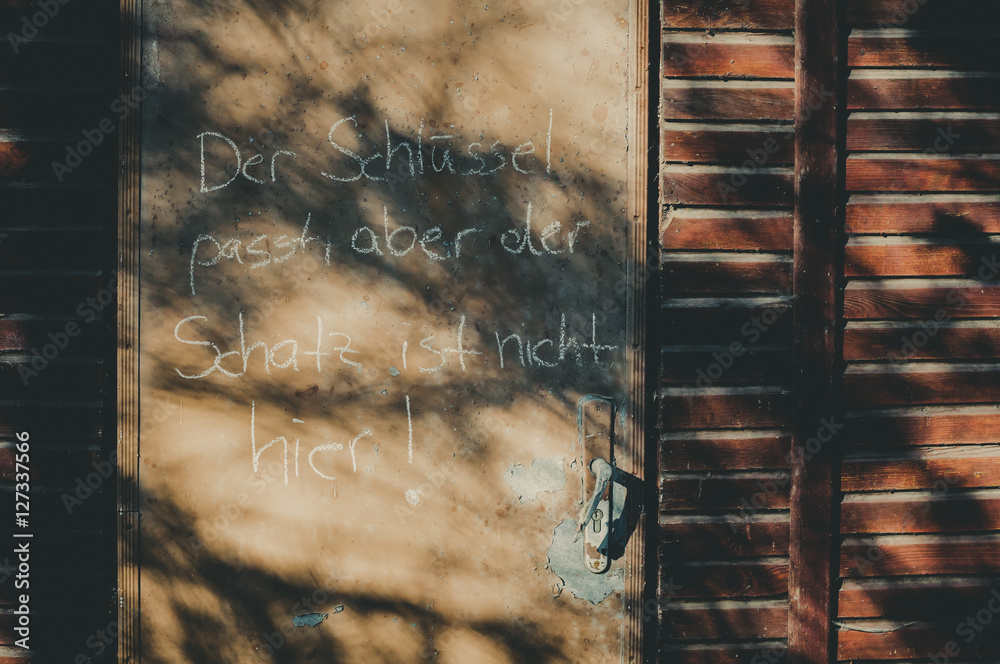 Der Schlüssel
passt, aber der
Schatz ist nicht
hier!
Adobe Stock | #127337566